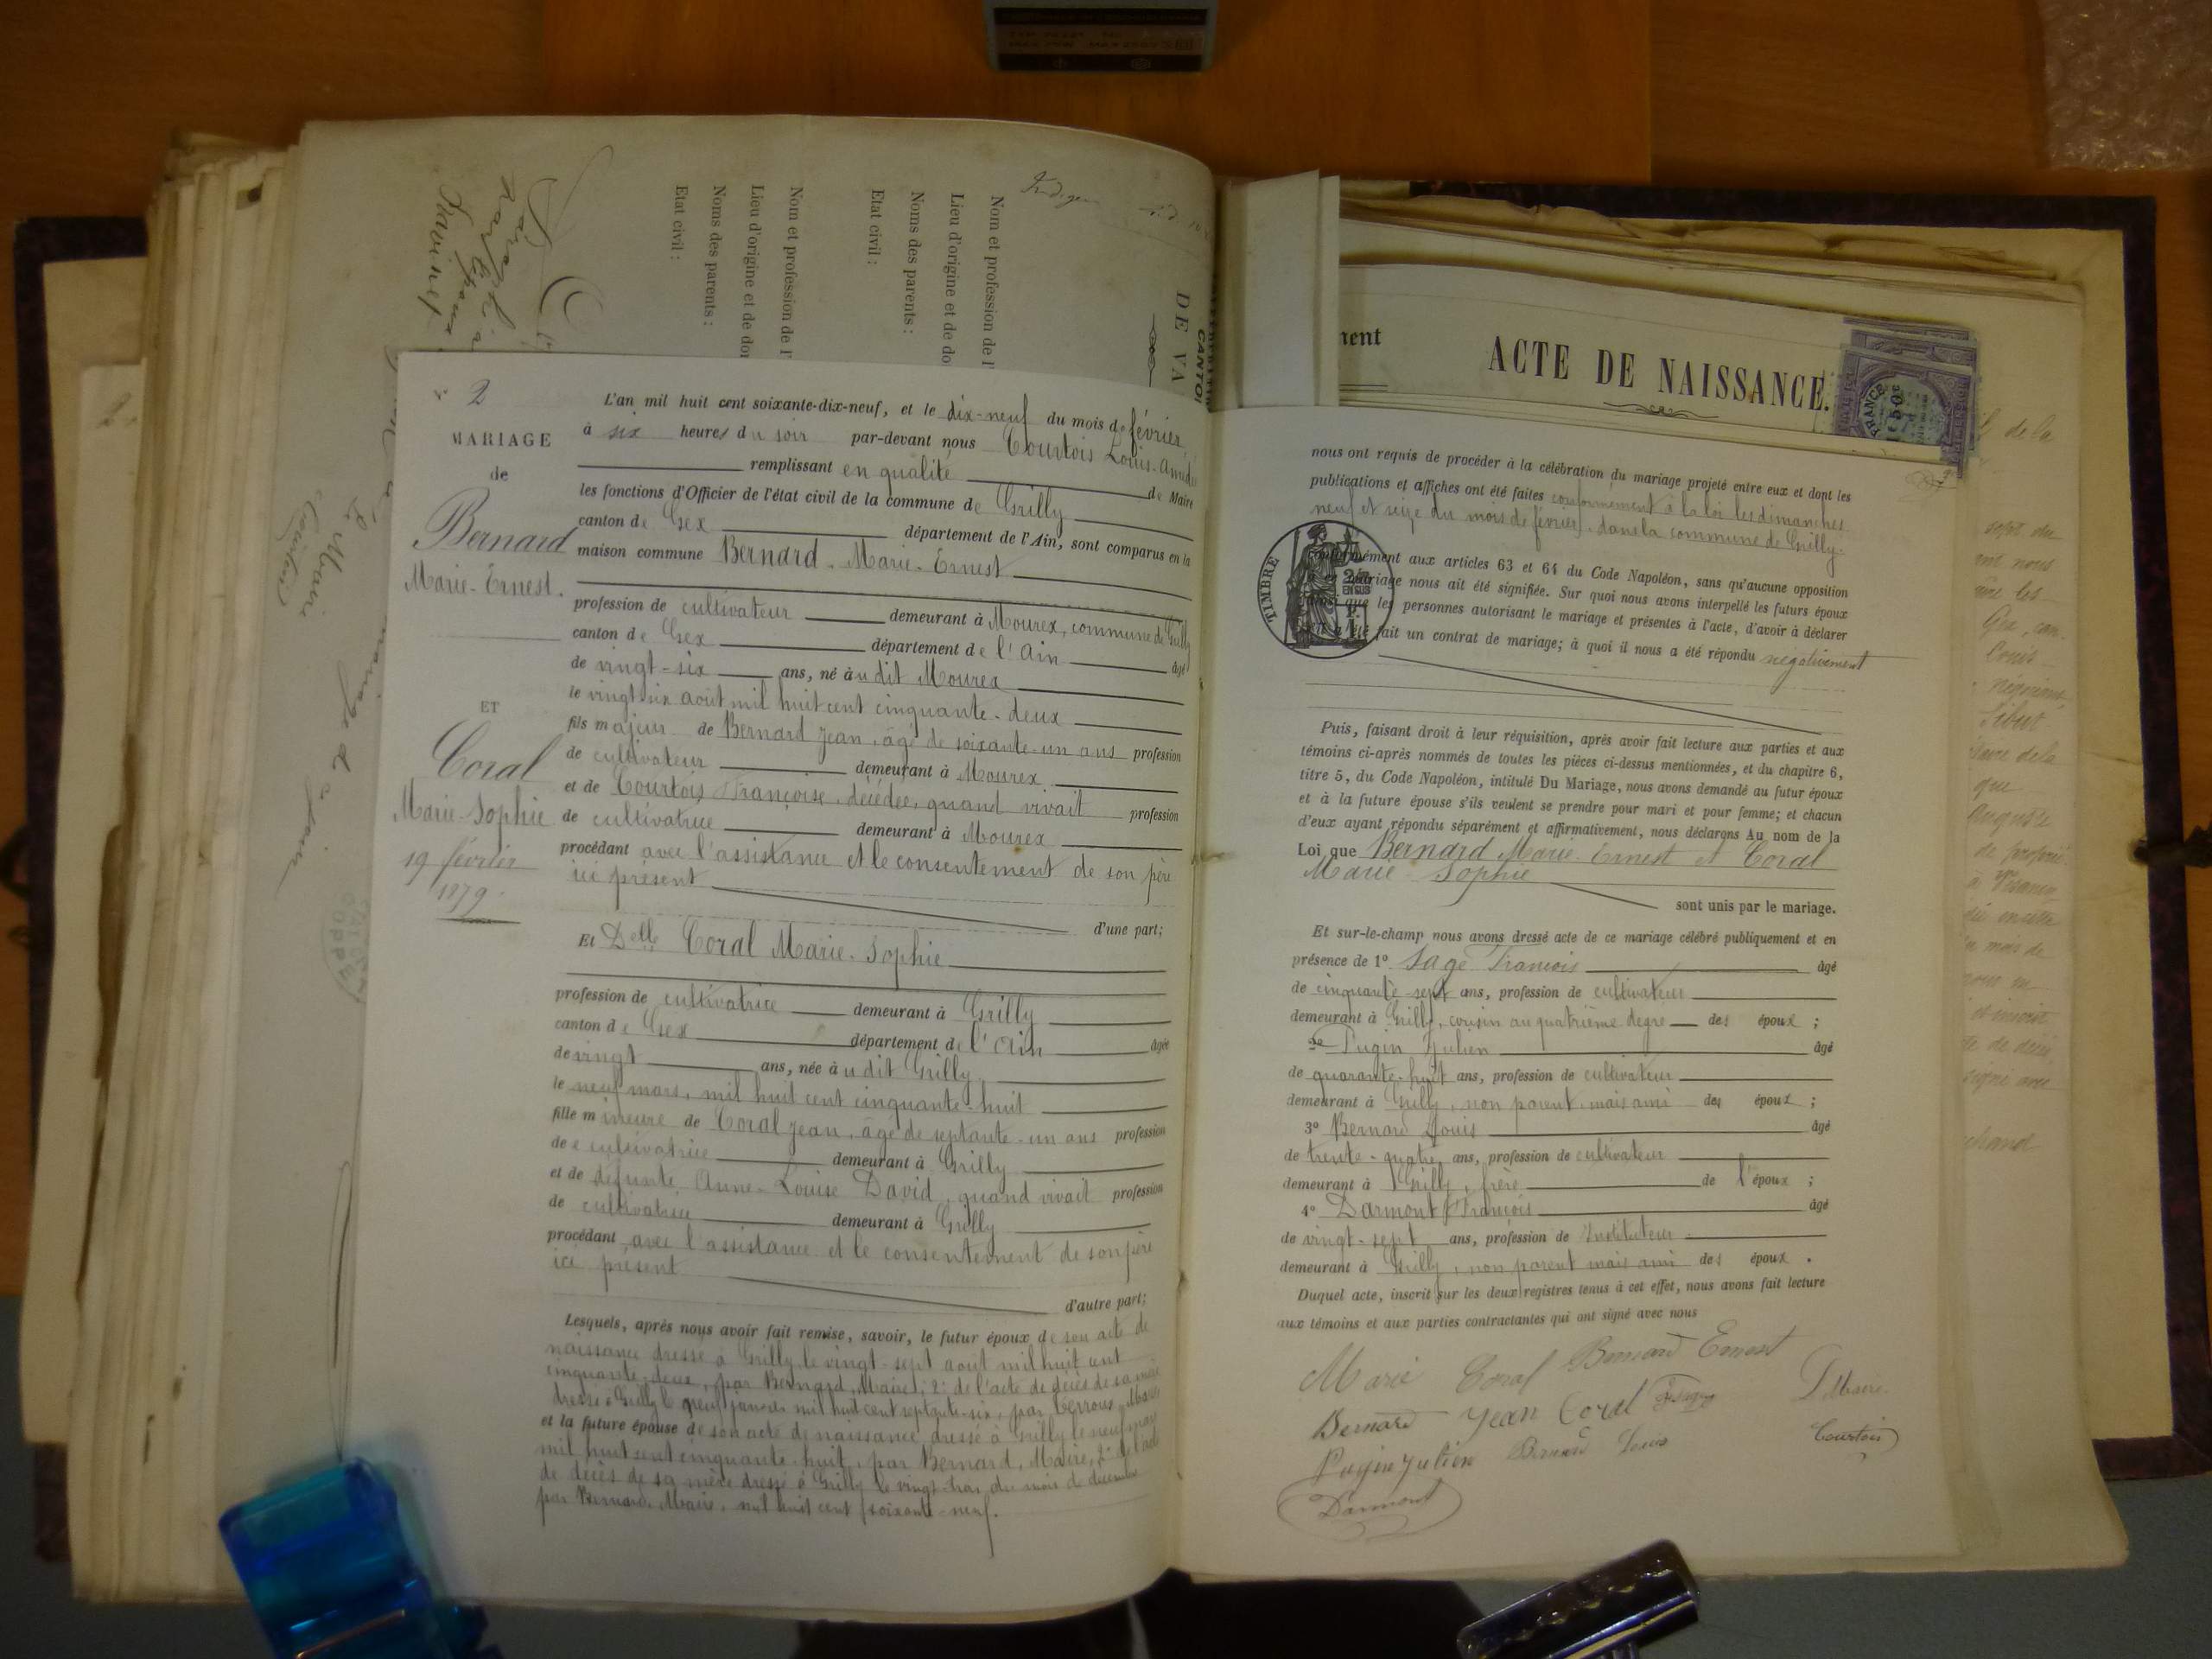 2
MARIAGE
de
Bernard
Marie-Ernest.
ET
Coral
Marie-Sophie
19 février
1879.
L'an mil huit cent soixante-dix-neuf, et le dix-neuf du mois de février,
à six heures du soir par-devant nous Courtois Louis-Amédé
remplissant en qualité de Maire
les fonctions d'Officier de l'état civil de la commune de Grilly
canton de Gex département de l'Ain, sont comparus en la
maison commune Bernard-Marie-Ernest
profession de cultivateur demeurant à Mourex, commune de Grilly
canton de Gex département de l'Ain âgé
de vingt-six ans, né àudit Mourex
le vingt six août mil huit cent cinquante-deux
fils majeur de Bernard Jean, âgé de soixante-un ans profession
de cultivateur demeurant à Mourex
et de Courtois Françoise, décédée, quand vivait profession
de cultivatrice demeurant à Mourex
procédant avec l'assistance et le consentement de son père
ici présent
d'une part;
Et Delle Coral Marie-Sophie
profession de cultivatrice demeurant à Grilly
canton de Gex département de l'Ain âgée
de vingt ans, née àudit Grilly
le neuf mars, mil huit cent cinquante-huit
fille mineure de Coral Jean, âgé de septante-un ans profession
de cultivatrice demeurant à Grilly
et de défunte Anne-Louise David, quand vivait profession
de cultivatrice demeurant à Grilly
procédant avec l'assistance et le consentement de son père
ici présent
d'autre part;
Lesquels, après nous avoir fait remise, savoir, le futur époux de son acte de
naissance dressé à Grilly le vingt-sept août mil huit cent
cinquante-deux, par Bernard, Maire; 2° de l'acte de décès de sa mère
dressé à Grilly le neuf janvier mil huit cent septante-six, par Maire
et la future épouse de son acte de naissance, dressé à Grilly le neuf mars
mil huit cent cinquante-huit, par Bernard, Maire, 2° de l'acte
de décès de sa mère dressé à Grilly le vingt-trois du mois de décembre
par Bernard, Maire, mil huit cent soixante-neuf.
ACTE DE NAISSANCE.
FRANCE
nous ont requis de procéder à la célébration du mariage projeté entre eux et dont les
publications et affiches ont été faites conformément à la loi les dimanches
neuf et seize du mois de février, dans la commune de Grilly.
TIMBRE
conformément aux articles 63 et 64 du Code Napoléon, sans qu'aucune opposition
à ce mariage nous ait été signifiée. Sur quoi nous avons interpellé les futurs époux
ainsi que les personnes autorisant le mariage et présentes à l'acte, d'avoir à déclarer
s'il a été fait un contrat de mariage; à quoi il nous a été répondu négativement
Puis, faisant droit à leur réquisition, après avoir fait lecture aux parties et aux
témoins ci-après nommés de toutes les pièces ci-dessus mentionnées, et du chapitre 6,
titre 5, du Code Napoléon, intitulé Du Mariage, nous avons demandé au futur époux
et à la future épouse s'ils veulent se prendre pour mari et pour femme; et chacun
d'eux ayant répondu séparément et affirmativement, nous déclarons Au nom de la
Loi que Bernard Marie-Ernest et Coral
Marie-Sophie
sont unis par le mariage.
Et sur-le-champ nous avons dressé acte de ce mariage célébré publiquement et en
présence de 1° Sage François âgé
de cinquante-sept ans, profession de cultivateur
demeurant à Grilly, cousin au quatrième degré des époux ;
2° Pugin Julien âgé
de quarante-huit ans, profession de cultivateur
demeurant à Grilly, non parent, mais ami des époux ;
3° Bernard Louis âgé
de trente-quatre ans, profession de cultivateur
demeurant à Grilly, frère de l'époux ;
4° Darmont François âgé
de vingt-sept ans, profession de Instituteur
demeurant à Grilly, non parent mais ami des époux .
Duquel acte, inscrit sur les deux registres tenus à cet effet, nous avons fait lecture
aux témoins et aux parties contractantes qui ont signé avec nous
Marie Coral Bernard Ernest
Bernard Jean Coral Le Maire
Pugin Julien Bernard Louis Courtois
Darmont
Nom et profession de l'
Lieu d'origine et de do
Noms des parents :
Etat civil :
Nom et profession de l'
Lieu d'origine et de dor
Noms des parents :
Etat civil :
DE VA
CANTO
Le Maire